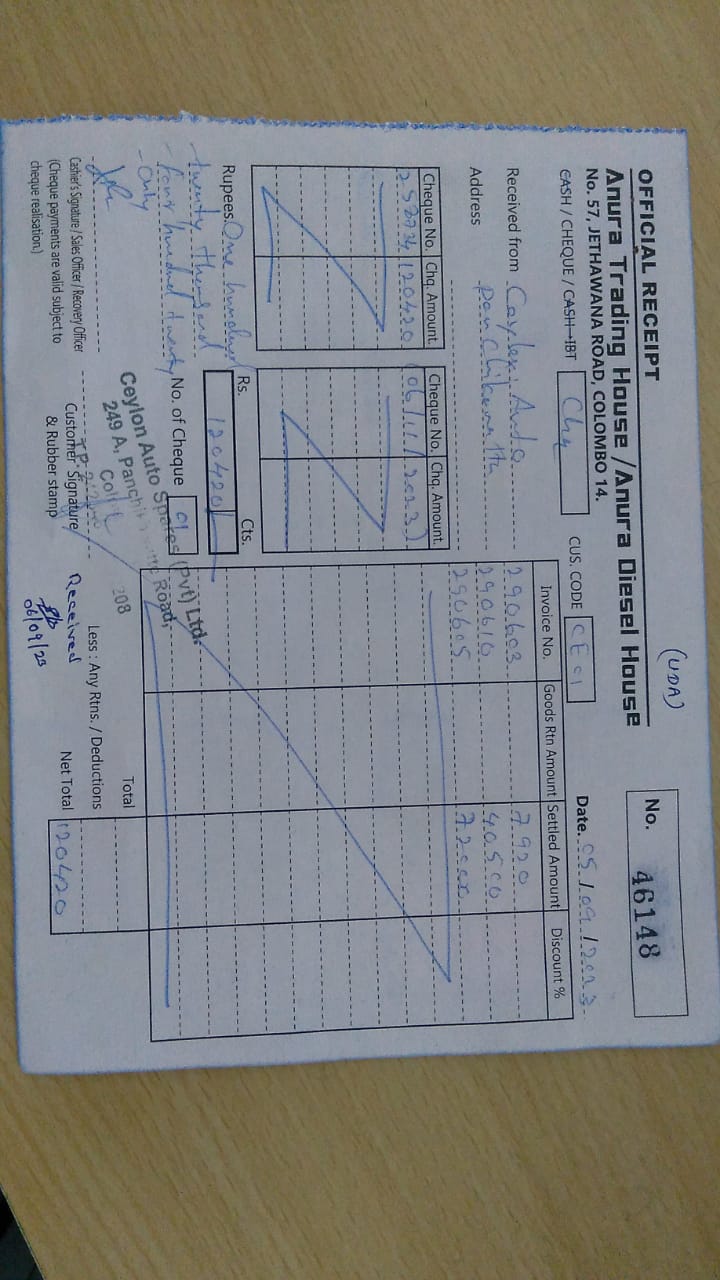 (UDA)
OFFICIAL RECEIPT
No. 46148
Anura Trading House / Anura Diesel House
No. 57, JETHAWANA ROAD, COLOMBO 14.
CASH / CHEQUE / CASH IBT Chq
CUS. CODE CE01
Date. 05/09/2023
Received from Ceylon Auto
Address
Panchikawatta
Cheque No. Chq. Amount. Cheque No. Chq. Amount.
120420 (06/11/2023)
Invoice No. Goods Rtn Amount Settled Amount Discount %
290603 7920
290610 40500
290605 72000
Rupees. One hundred
twenty thousand
four hundred twenty
only
Rs. Cts.
120420/
No. of Cheque 01
Ceylon Auto Spares (Pvt) Ltd.
249 A, Road,
208
Cashier's Signature / Sales Officer / Recovery Officer
(Cheque payments are valid subject to
cheque realisation.)
Customer Signature
& Rubber stamp
Received
06/09/23
Total
Less : Any Rtns. / Deductions
Net Total 120420